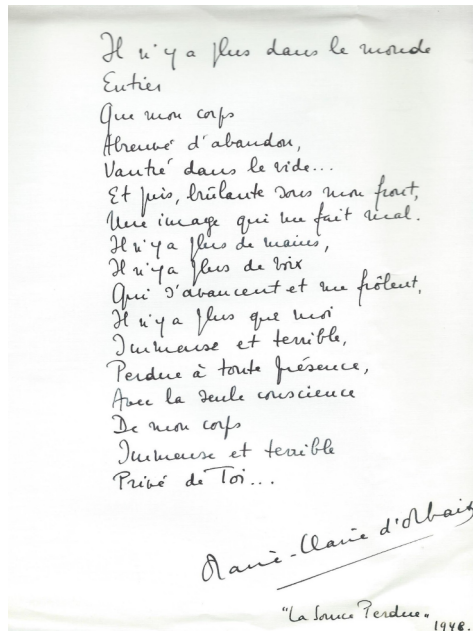 Il n'y a plus dans le monde
Entier
Que mon corps
Abreuvé d'abandon,
Vautré dans le vide...
Et puis, brûlante sous mon front,
Une image qui me fait mal.
Il n'y a plus de mains,
Il n'y a plus de voix
Qui s'avancent et me frôlent,
Il n'y a plus que moi
Immense et terrible,
Perdue à toute présence,
Avec la seule conscience
De mon corps
Immense et terrible
Privé de Toi...
Marie-Claire d'Orbaix
"La Source Perdue"
1948.